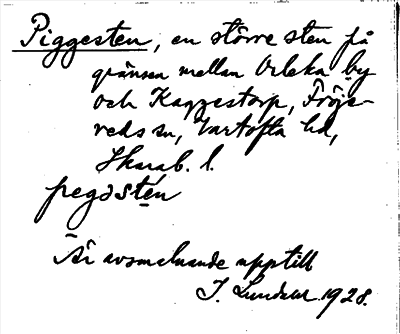 Piggesten, en större sten på
gränsen mellan Orleka by
och Kaggestorp, Fröje-
reds sn, Vartofta hd,
Skarab. l.
pegəstẹn
Är avsmalnande upptill
J. Lundahl 1928.